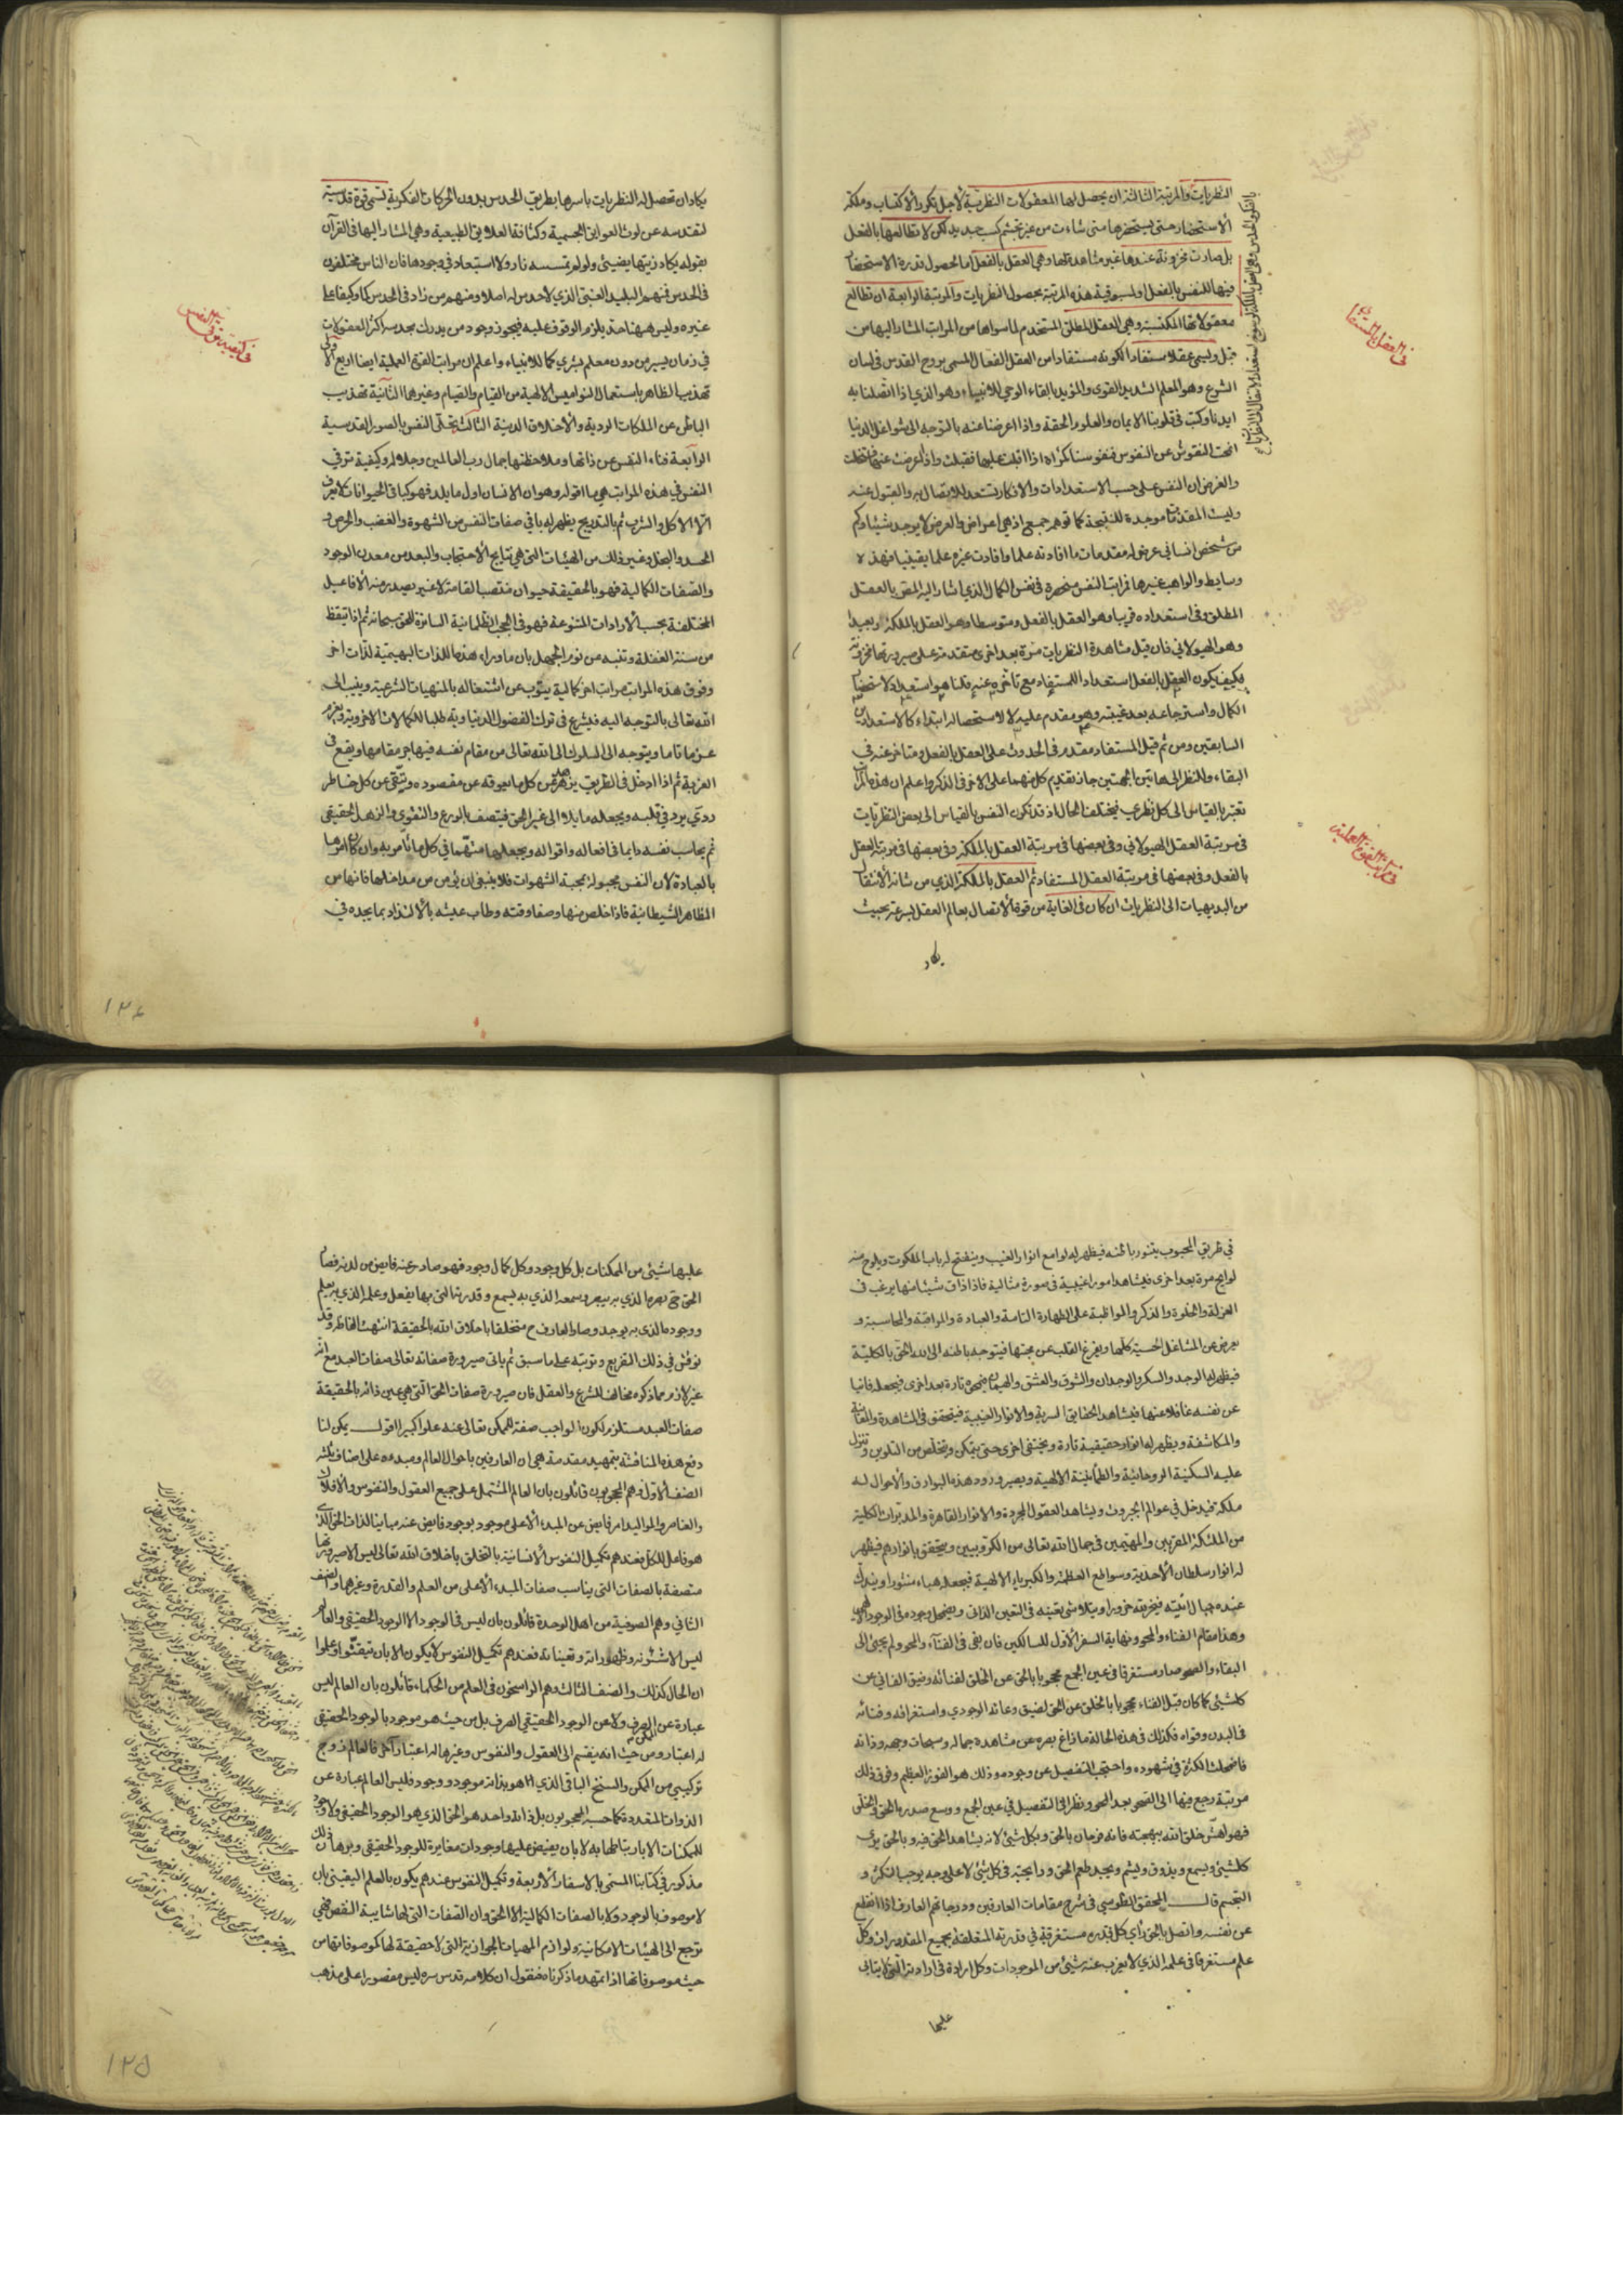 النظريات والمرتبة الثالثة ان يحصل لها المعقولات النظرية لأجل تكرر الاكتساب وملكة
الاستحضار حتى يستحضرها متى شاءت من غير تجشم كسب جديد لكن لا تطالعها بالفعل
بل صارت مخزونة عندها غير مشاهدة لها وهى العقل بالفعل اما لحصول قدرة الاستحضار
فيها للنفس بالفعل او لمسبوقية هذه المرتبة بحصول النظريات والمرتبة الرابعة ان تطالع
معقولاتها المكتسبة وهى العقل المطلق المستخدم لما سواها من المراتب المشار اليها من
قبل ويسمى عقلا مستفادا لكونه مستفادا من العقل الفعال المسمى بروح القدس فى لسان
الشرع وهو المعلم الشديد القوى والمؤيد بالقاء الوحى للانبياء وهو الذى اذا اتصلنا به
ايدنا وكتب فى قلوبنا الايمان والعلوم الحقة واذا اعرضنا عنه بالتوجه الى شواغل الدنيا
انمحت النقوش عن النفوس فنفوسنا كمرآة اذا اقبلت عليها فقبلت واذا اعرضت عنها فتخلت
والغرض ان النفس على حسب الاستعدادات والافكار تستعد للاتصال به والقبول عنه
وليست المقدمات موجدة للنتيجة كما توهم جمع اذ هى اعراض والعرض لا يوجد شيئا وكم
من شخص انسانى عرض له مقدمات ما افادته علما وافادت غيره علما يقينيا فهذه
وسايط والواهب غيرها فمراتب النفس منحصرة فى نفس الكمال الذى اشار اليه المص بالعقل
المطلق وفى استعداده قريبا وهو العقل بالفعل ومتوسطا وهو العقل بالملكة وبعيدا
وهو الهيولانى فان قيل مشاهدة النظريات مرة بعد اخرى متقدمة على صيرورتها مخزونة
فكيف يكون العقل بالفعل استعداد المستفاد مع تأخره عنه قلنا هو استعداد لاستحضار
الكمال واسترجاعه بعد غيبته وهو مقدم عليه لا لاستحصاله ابتداء كالاستعدادين
السابقين ومن ثم قيل المستفاد مقدم فى الحدوث على العقل بالفعل ومتاخر عنه فى
البقاء وللنظر الى هاتين الجهتين جاز تقديم كل منهما على الاخر فى الذكر واعلم ان هذه المراتب
تعتبر بالقياس الى كل نظرى فيختلف الحال اذ قد تكون النفس بالقياس الى بعض النظريات
فى مرتبة العقل الهيولانى وفى بعضها فى مرتبة العقل بالملكة وفى بعضها فى مرتبة العقل
بالفعل وفى بعضها فى مرتبة العقل المستفاد ثم العقل بالملكة الذى من شانه الانتقال
من البديهيات الى النظريات ان كان فى الغاية من قوة الاتصال بعالم العقل بسرعة بحيث
يكاد
فى العقل بالمستفاد
فى مراتب القوة العملية
يكاد ان تحصل له النظريات باسرها بطريق الحدس بدون الحركات الفكرية تسمى قوة قدسية
لتقدسه عن لوث العوايق الجسمية وكثافة العلايق الطبيعية وهى المشار اليها فى القرآن
بقوله يكاد زيتها يضيئ ولو لم تمسسه نار ولا استبعاد فى وجودها فان الناس مختلفون
فى الحدس فمنهم البليد الغبى الذى لا حدس له اصلا ومنهم من زاد فى الحدس كما وكيفا على
غيره وليس ههنا حد يلزم الوقوف عليه فيجوز وجود من يدرك بحدسه اكثر المعقولات
فى زمان يسير من دون معلم بشرى كما للانبياء واعلم ان مراتب القوة العملية ايضا اربع الاولى
تهذيب الظاهر باستعمال النواميس الالهية من القيام والصيام وغيرهما الثانية تهذيب
الباطن عن الملكات الردية والاخلاق الدنية الثالثة تحلى النفس بالصور القدسية
الرابعة فناء النفس عن ذاتها وملاحظتها جمال رب العالمين وجلاله وكيفية ترقى
النفس فى هذه المراتب هى ما اقوله وهو ان الانسان اول ما يلد فهو كباقى الحيوانات لا يعرف
الا الاكل والشرب ثم بالتدريج يظهر له باقى صفات النفس من الشهوة والغضب والحرص و
الحسد والبخل وغير ذلك من الهيئات التى هى نتايج الاحتجاب والبعد من معدن الوجود
والصفات الكمالية فهو بالحقيقة حيوان منتصب القامة لا غير يصدر منه الافاعيل
المختلفة بحسب الارادات المتنوعة فهو فى الحجب الظلمانية الساترة للحق سبحانه ثم اذا تيقظ
من سنة الغفلة وتنبه من نوم الجهل بان ما وراء هذه اللذات البهيمية لذات اخر
وفوق هذه المراتب مراتب اخر كمالية يتوب عن اشتغاله بالمنهيات الشرعية وينيب الى
الله تعالى بالتوجه اليه فيشرع فى ترك الفضول الدنياوية طلبا للكمالات الاخروية ويعزم
عزما تاما ويتوجه الى السلوك الى الله تعالى من مقام نفسه فيهاجر مقامها ويقع فى
الغربة ثم اذا ادخل فى الطريق يزهد عن كل ما يعوقه عن مقصوده ويتقى عن كل خاطر
ردى يرد فى قلبه ويجعله مايلا الى غير الحق فيتصف بالورع والتقوى والزهد الحقيقى
ثم يحاسب نفسه دايما فى افعاله واقواله ويجعلها متهما فى كل ما تأمر به وان كان امرها
بالعبادة لان النفس مجبولة بمحبة الشهوات فلا ينبغى ان يؤمن من مداخلها فانها من
المظاهر الشيطانية فاذا خلص منها وصفا وقته وطاب عيشه بالالتذاذ بما يجده فى
فى كيفية ترقى النفس
١٢٤
فى طريق المحبوب يتنور باطنه فيظهر له لوامع انوار الغيب وينفتح له باب الملكوت ويلوح منه
لوايح مرة بعد اخرى فيشاهد امورا غيبية فى صورة مثالية فاذا ذاق شيئا منها يرغب فى
العزلة والخلوة والذكر والمواظبة على الطهارة التامة والعبادة والمراقبة والمحاسبة و
يعرض عن المشاغل الحسية كلها ويفرغ القلب عن محبتها فيتوجه باطنه الى الله الحق بالكلية
فيظهر له الوجد والسكر والوجدان والشوق والعشق والهيمان فيمحوه تارة بعد اخرى فيجعله فانيا
عن نفسه غافلا عنها فيشاهد الحقايق السرية والانوار الغيبية فيتحقق فى المشاهدة والمعاينة
والمكاشفة ويظهر له انوار حقيقية تارة ويختفى اخرى حتى يتمكن ويتخلص من التلوين وتنزل
عليه السكينة الروحانية والطمأنينة الالهية ويصير ورود هذه البوارق والاحوال له
ملكة فيدخل فى عوالم الجبروت ويشاهد العقول المجردة والانوار القاهرة والمدبرات الكلية
من الملئكة المقربين والمهيمين فى جمال الله تعالى من الكروبيين ويتحقق بانوارهم فيظهر
له انوار سلطان الاحدية وسواطع العظمة والكبرياء الالهية فيجعله هباء منثورا ويندك
عنده جبال انيته فيخر لله خرورا ويتلاشى تعينه فى التعين الذاتى ويضمحل وجوده فى الوجود الالهى
وهذا مقام الفناء والمحو ونهاية السفر الاول للسالكين فان بقى فى الفناء والمحو ولم يجئ الى
البقاء والصحو صار مستغرقا فى عين الجمع محجوبا بالحق عن الخلق لفنائه وضيق الفانى عن
كلشيئ كما كان قبل الفناء محجوبا بالخلق عن الحق لضيق وعائه الوجودى واستغراقه وفنائه
فى البدن وقواه فكذلك فى هذه الحالة ما زاغ بصره عن مشاهدة جماله وسبحات وجهه وذاته
فاضمحلت الكثرة فى شهوده واحتجب التفصيل عن وجوده وذلك هو الفوز العظيم وفوق ذلك
مرتبة رجع فيها الى الصحو بعد المحو ونظر الى التفصيل فى عين الجمع ووسع صدره الحق والخلق
فهو اهش خلق الله ببهجته فانه فرحان بالحق وبكل شئ لانه يشاهد الحق فيه وبالحق يرى
كلشيئ ويسمع ويذوق ويشم ويجد طعم الحق ورايحته فى كل شئ لا على وجه يوجب التكثر و
التجسم قال المحقق الطوسى فى شرح مقامات العارفين ودرجاتهم العارف اذا انقطع
عن نفسه واتصل بالحق رأى كل قدرة مستغرقة فى قدرته المتعلقة بجميع المقدورات وكل
علم مستغرقا فى علمه الذى لا يعزب عنه شيئ من الموجودات وكل ارادة فى ارادته التى لا يتابى
عليها
عليها شيئ من الممكنات بل كل وجود وكل كمال وجود فهو صادر عنه فايض من لدنه فصار
الحق ح بصره الذى به يبصر وسمعه الذى به يسمع وقدرته التى بها يفعل وعلمه الذى به يعلم
ووجوده الذى به يوجد وصار العارف ح متخلقا باخلاق الله بالحقيقة انتهت الفاظه وقد
نوقش فى ذلك التفريع وترتبه على ما سبق ثم بانى صيرورة صفاته تعالى صفات العبد مع انه
غير لازم مما ذكره مخالف للشرع والعقل فان صيرورة صفات الحق التى هى عين ذاته بالحقيقة
صفات العبد مستلزم لكون الواجب صفة للممكن تعالى عنه علوا كبيرا اقول يمكن لنا
دفع هذه المناقشة بتمهيد مقدمة هى ان العارفين باحوال العالم ومبدءه على اصناف ثلثة
الصنف الاول وهم المحجوبون قائلون بان العالم المشتمل على جميع العقول والنفوس والافلاك
والعناصر والمواليد امر فايض عن المبدء الأعلى موجود بوجود فايض عنه مباينا لذات الحق الذى
هو فاعل للكل فعندهم تكميل النفوس الانسانية بالتخلق باخلاق الله تعالى ليس الا صيرورتها
متصفة بالصفات التى يناسب صفات المبدء الأعلى من العلم والقدرة وغيرهما والصنف
الثانى وهم الصوفية من اهل الوحدة قائلون بان ليس فى الوجود الا الوجود الحقيقى والعالم
ليس الا شئونه وظهوراته وتعيناته فعندهم تكميل النفوس لا يكون الا بان تيقنوا وعلموا
ان الحال كذلك والصنف الثالث وهم الراسخون فى العلم من الحكماء قائلون بان العالم ليس
عبارة عن الممكن الصرف ولا عن الوجود الحقيقى الصرف بل من حيث هو موجود بالوجود الحقيقى
له اعتبار ومن حيث انه ينقسم الى العقول والنفوس وغيرها له اعتبار آخر فالعالم زوج
تركيبى من الممكن والسنخ الباقى الذى هو بذاته موجود ووجود فليس العالم عبارة عن
الذوات المتعددة كما حسبه المحجوبون بل ذاته واحد هو الحق الذى هو الوجود الحقيقى ولا وجود
للممكنات الا بارتباطها به لا بان يفيض عليها وجودات مغايرة للوجود الحقيقى وبرهان ذلك
مذكور فى كتابنا المسمى بالاسفار الأربعة وتكميل النفوس عندهم يكون بالعلم اليقينى بان
لا موصوف بالوجود ولا بالصفات الكمالية الا الحق وان الصفات التى لها شايبة النقص فهى
ترجع الى الهيئات الامكانية ولوازم المهيات الجوازية التى لا حقيقة لها كموصوفاتها من
حيث موصوفاتها اذا تمهد ما ذكرناه فنقول ان كلامه قدس سره ليس مقصورا على مذهب
١٢٥